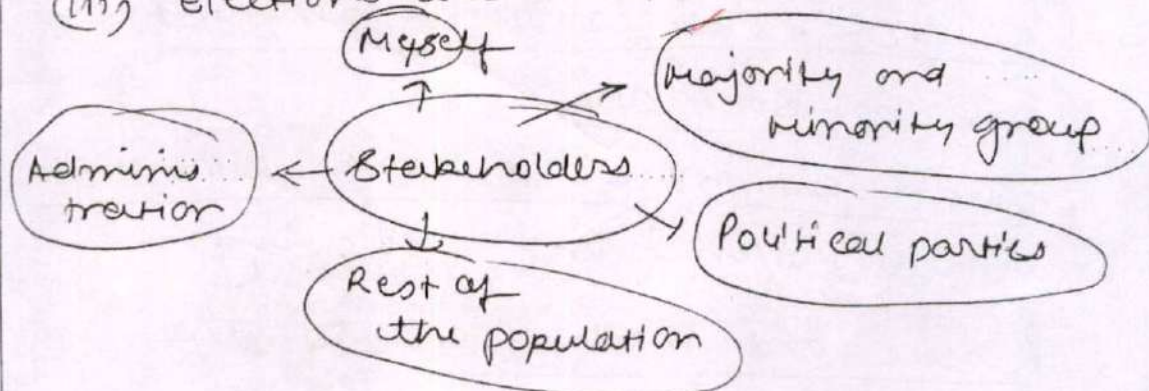 (iii) elections
Myself
Majority and
minority group
Adminis
tration
Stakeholders
Political parties
Rest of
the population